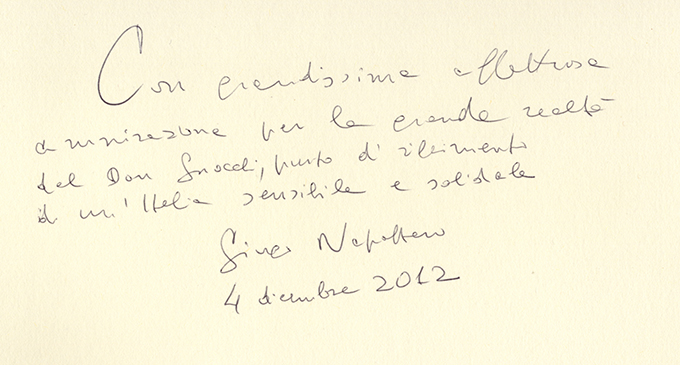 Con grandissima affettuosa
ammirazione per la grande realtà
del Don Gnocchi, punto di riferimento
di un'Italia sensibile e solidale
Giorgio Napolitano
4 dicembre 2012